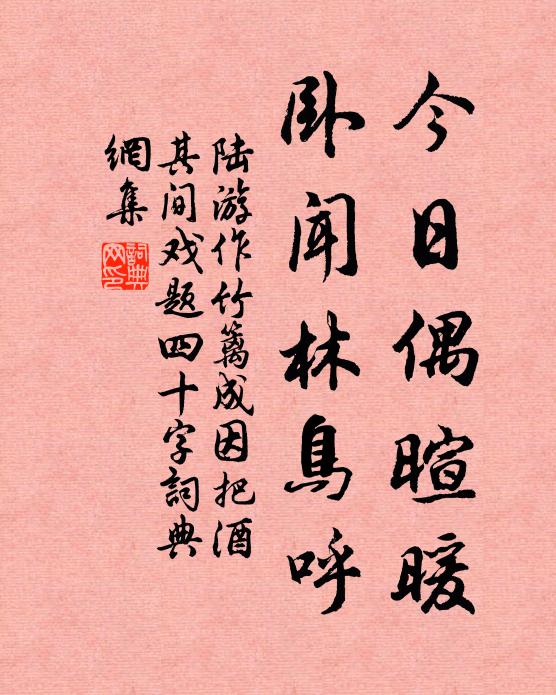 今日偶暄暖
卧闻林鳥呼
陆游作竹篱成因把酒
其间戏题四十字詞典
網集
詞典
网印